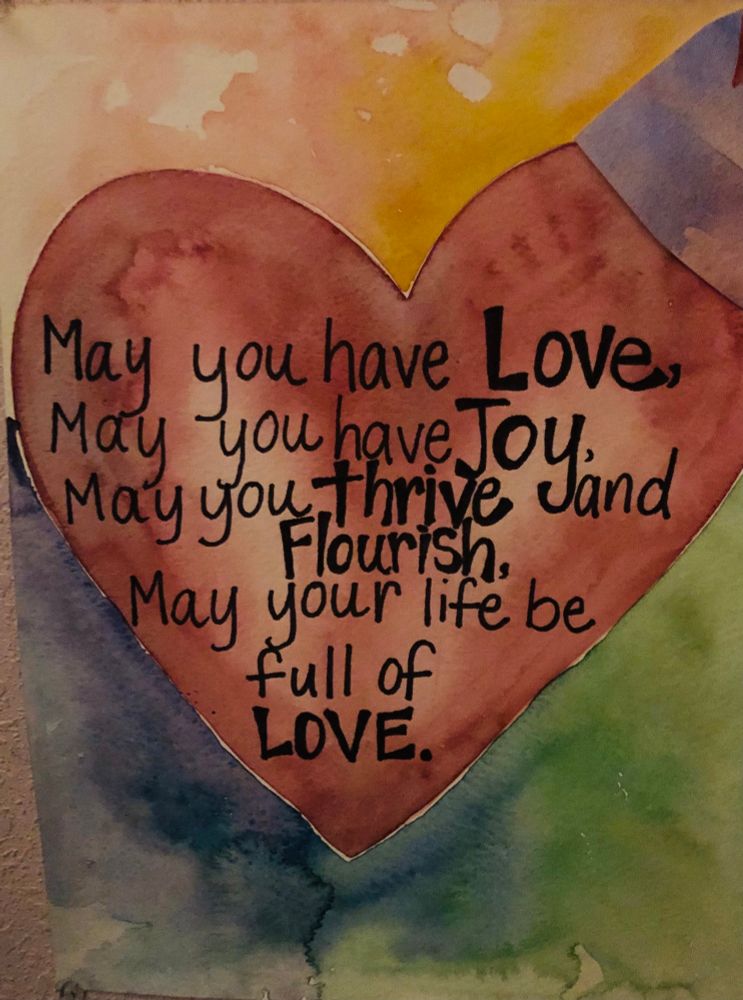 May you have Love,
May you have Joy,
May you thrive and
Flourish,
May your life be
full of
LOVE.